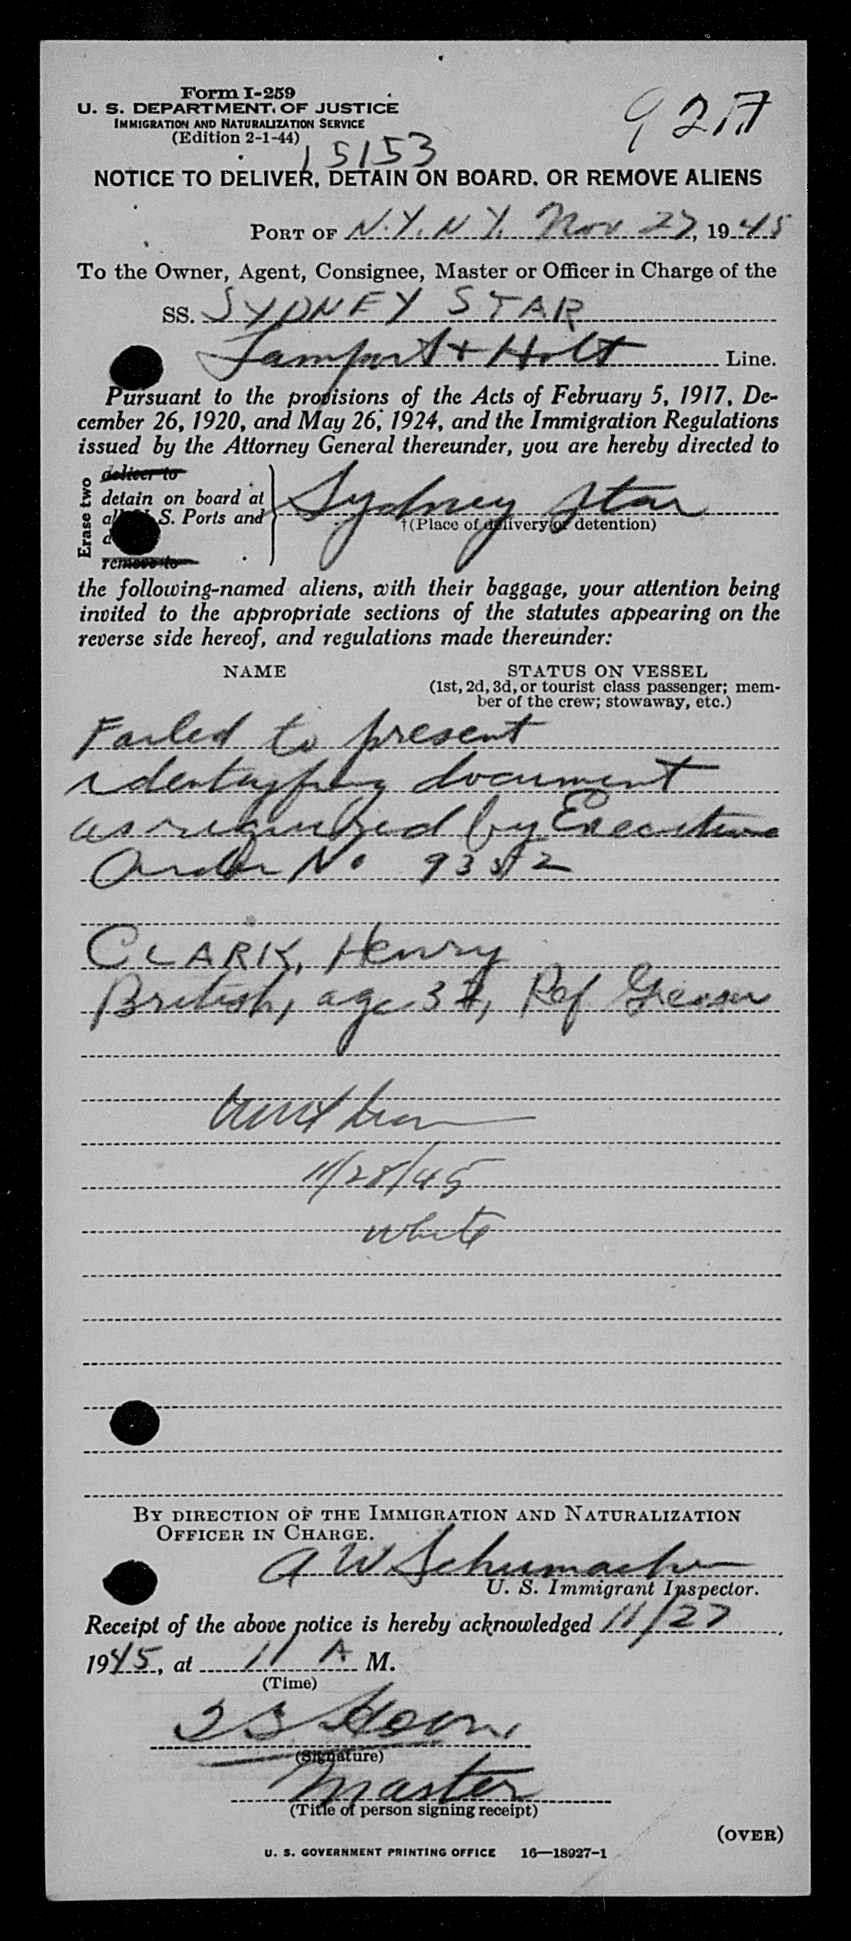 Form I-259
U. S. DEPARTMENT OF JUSTICE
IMMIGRATION AND NATURALIZATION SERVICE
(Edition 2-1-44)
15153
NOTICE TO DELIVER, DETAIN ON BOARD, OR REMOVE ALIENS
PORT OF N.Y. N.Y. Nov 27, 1945
To the Owner, Agent, Consignee, Master or Officer in Charge of the
SS. SYDNEY STAR
Lamport + Holt Line.
Pursuant to the provisions of the Acts of February 5, 1917, De-
cember 26, 1920, and May 26, 1924, and the Immigration Regulations
issued by the Attorney General thereunder, you are hereby directed to
Erase two
deliver to
detain on board at
all U. S. Ports and
remove to
Sydney Star
†(Place of delivery or detention)
the following-named aliens, with their baggage, your attention being
invited to the appropriate sections of the statutes appearing on the
reverse side hereof, and regulations made thereunder:
NAME STATUS ON VESSEL
(1st, 2d, 3d, or tourist class passenger; mem-
ber of the crew; stowaway, etc.)
Failed to present
identifying document
as required by Executive
Order No 9352
CLARK, Henry
British, age 37, Ref Greaser
11/28/45
White
BY DIRECTION OF THE IMMIGRATION AND NATURALIZATION
OFFICER IN CHARGE.
A W Schumacher
U. S. Immigrant Inspector.
Receipt of the above notice is hereby acknowledged 11/27,
1945, at 11 A M.
(Time)
(Signature)
Master
(Title of person signing receipt)
(OVER)
U. S. GOVERNMENT PRINTING OFFICE 16—18927-1